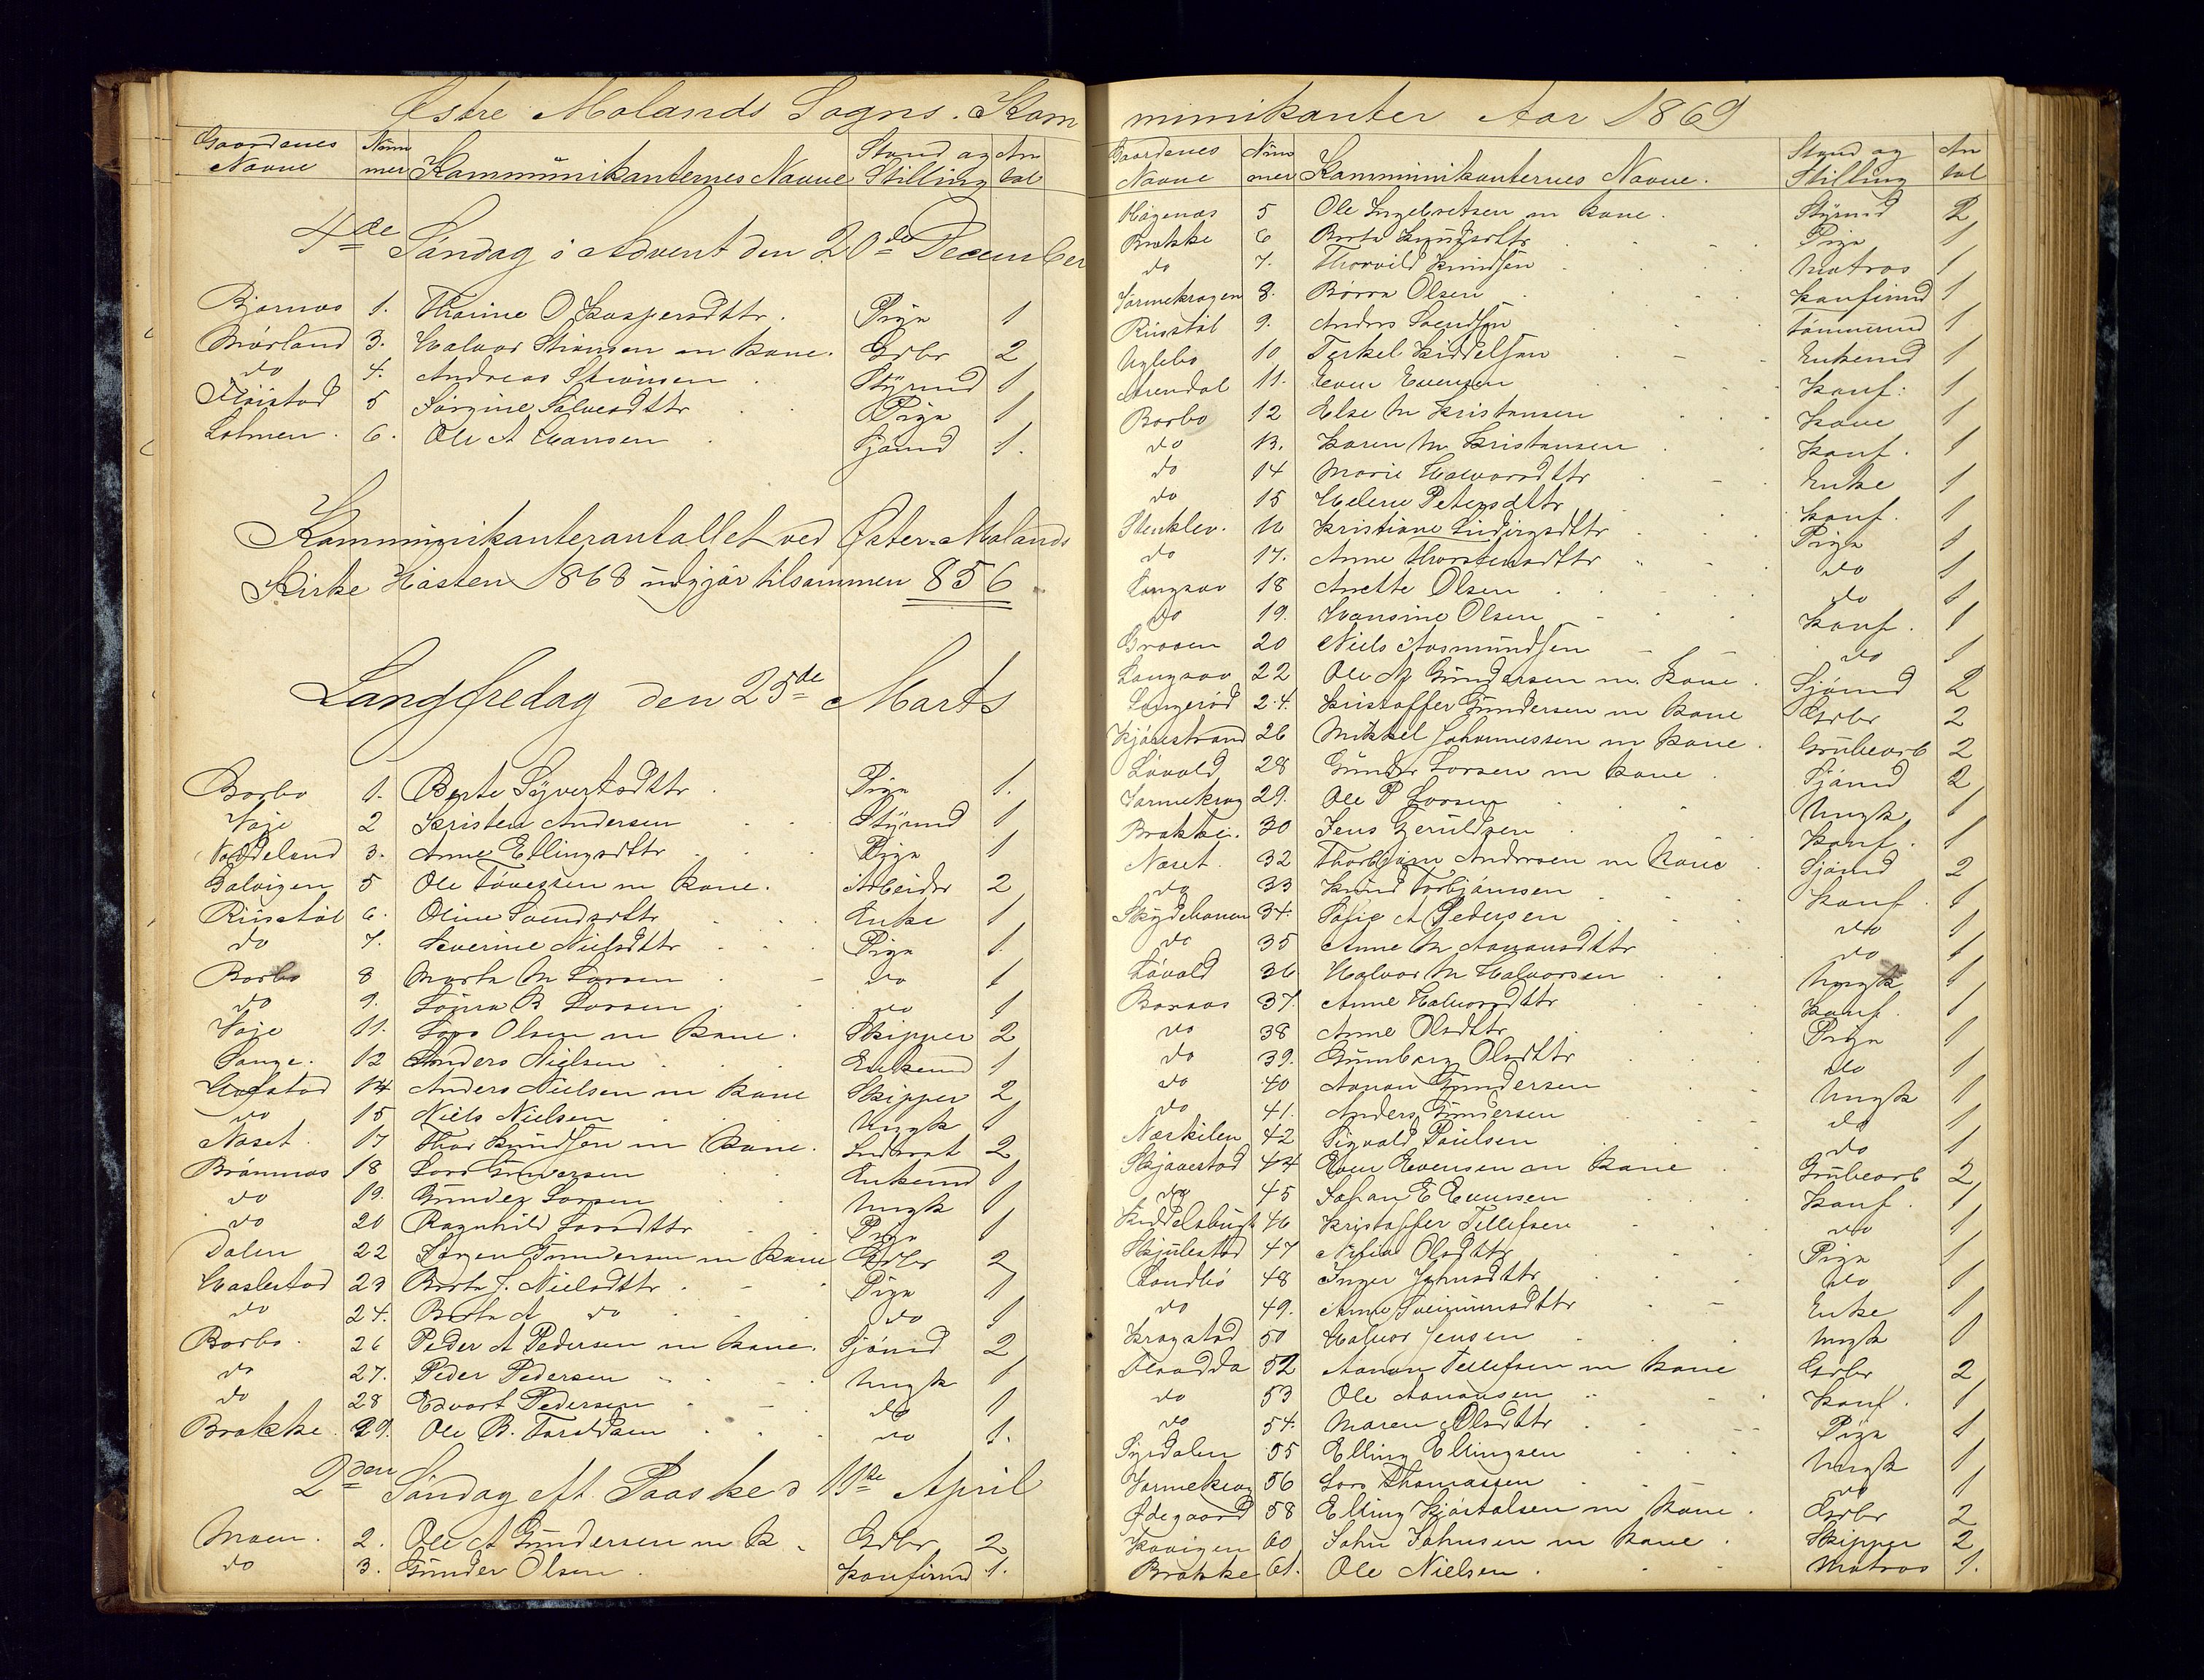 Østre Molands Sogns. Kommunikanter Aar 1869
Gaardenes Navne Nummer Kommünikanternes Navne Stand og Stilling Antal
4de Søndag i Advent den 20de December
Bjornas 1. Thorine O Kaspersdttr. Pige 1
Mørland 3. Halvor Stiansen m Kone. Grbr 2
do 4. Andreas Stiansen Styrmd 1
Fløistad 5 Jørgine Salvesdttr Pige 1
Lolmen. 6. Ole A Hansen Sjømd 1.
Kommunikanterantallet ved Øster-Molands
Kirke Høsten 1868 udgjør tilsammen 856
Langfredag den 25de Marts
Borbo 1. Berte Syvertsdttr Pige 1.
Vaje 2 Kristen Andersen Styrmd 1
3. Anne Ellingsdttr Pige 1
5 Ole Tovessen m Kone. Arbeider 2
Riisstøl 6. Oline Svendsdttr Enke 1
do 7. Severine Nielsdttr Pige 1.
Borbo 8 Marta M Larsen do 1
do 9. B Larsen do 1
Vaje 11. Lars Olsen m Kone. Skipper 2
Sange. 12 Anders Nielsen Enkemd 1
14 Anders Nielsen m Kone Skipper 2
do 15 Niels Nielsen Ungk 1
Naset. 17 Thor Knudsen m Kone. 2
Brønnas 18 Lars Gundersen Enkemd 1
do 19. Günder Larsen Ungk 1
do 20 Ragnhild Larsdttr Pige 1
Dalen 22 Jørgen Gundersen m Kone Grbr 2
Haslestad 23 Berte S. Nielsdttr Pige 1
do 24. Berte A do do 1
Borbo. 26 Peder A Pedersen m Kone. Sjømd 2
do 27. Peder Pedersen Ungk 1
do 28 Edvart Pedersen do 1
Brekke 29. Ole B. do 1.
2den Søndag eft Paaske d 11te April
Moen. 2. Ole A Gündersen m K. Grbr 2
do 3. Günder Olsen Konfirmd 1.
Gaardenes Navne Nummer Kommunikanternes Navne. Stand og Stilling Antal
Hagenas 5 Ole Ingebretsen m Kone. Styrmd 2
Brekke 6 Berte Knudsdttr Pige 1
do 7. Thorvild Knudsen Matros 1
8. Børre Olsen Konfirmd 1
Riisstøl 9. Anders Svendsen Tømmermd 1
Uglebo 10 Terkel Kiddelsen Enkemd 1
Arendal 11. Even Evensen Konf: 1
Borbo 12 Else M Kristensen Kone 1
do 13. Karen M Kristensen Konf. 1
do 14 Marie Halvorsdttr Enke 1
do 15 Helene Petersdttr Konf. 1
Stenklev. 16 Kristiane Ludvigsdttr Pige 1
do 17. Anne Thorstensdttr do 1
Langsav 18 Anette Olsen do 1
do 19. Hansine Olsen Konf. 1
Braaen 20 Niels Aasmundsen do 1
Langsav 22 Ole N Gündersen m. Kone. Sjømd 2
Langerød 24. Kristoffer Gündersen m Kone Grbr 2
26 Mikkel Johannessen m Kone. Grubearb 2
Løvold 28 Günder Larsen m Kone. Sjømd 2
29. Ole P Larsen Ungk 1
Brekke. 30 Jens Konf. 1
Naset. 32 Thorbjørn Andersen m Kone Sjømd 2
do 33 Knud Torbjørnsen Konf. 1
34. Sofie A Pedersen do 1
do 35 Anne M Aanonsdttr do 1
Løvold 36 Halvor M Halvorsen Ungk 1
Boraas 37. Anne Halvorsdttr Konf. 1
do 38 Anne Olsdttr Pige 1
do 39. Gunborg Olsdttr do 1
do 40 Aanon Gundersen Ungk 1
do 41. Anders Gundersen do 1
Narkilen 42 Sigvald Paulsen do 1
44 Even Evensen m Kone Grubearb 2
do 45 Johan E Evensen Konf. 1
46 Kristoffer Tellefsen do 1
Skjulestad 47 Olsdttr Pige 1
Landbø 48 Inger Johnsdttr do 1
do 49. Anne Enke 1
Kragstad 50 Halvor Jensen Ungk 1
Flaadda 52 Aanon Tellefsen m Kone Grbr 2
do 53 Ole Aanonsen Konf. 1
do 54. Maren Olsdttr Pige 1
Syrdalen 55 Elling Ellingsen Ungk 1
56 Lars Thomassen do 1
Ødegaard 58 Elling Kjøstolsen m Kone. Grbr 2
60 John Johnsen m Kone. Skipper 2
Brekke 61. Ole Nielsen. Matros 1.